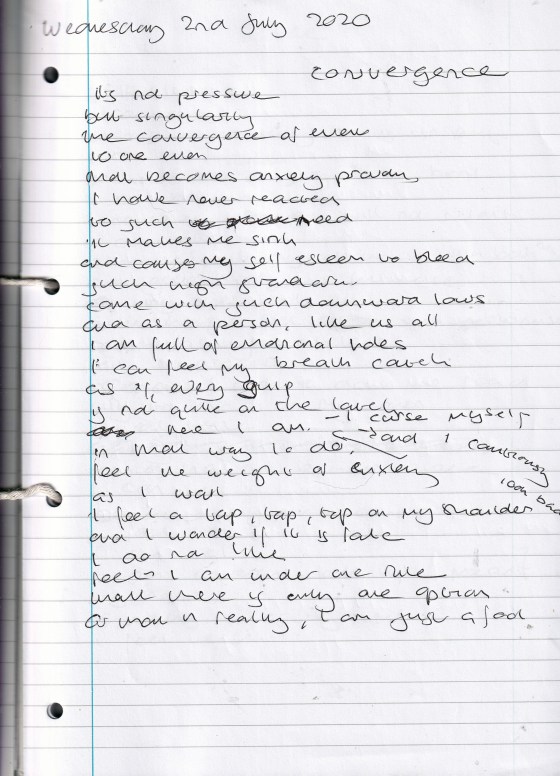 Wednesday 2nd July 2020
Convergence
its not pressure
but singularity
the convergence of even
to one even
that becomes anxiety
I have never reacted
to such need
it makes me sink
and causes my self esteem to bleed
such high standards
come with such downward lows
and as a person, like us all
I am full of emotional holes
I can feel my breath catch
as if, every gulp
is not quite on the latch
here I am. - I curse myself
in that way I do. → and I cautiously look back
feel the weight of anxiety
as I wait
I feel a tap, tap, tap on my shoulder
and I wonder if it is fate
I do not like
feels I am under one rule
that there is only one option
or that in reality, I am just a fool